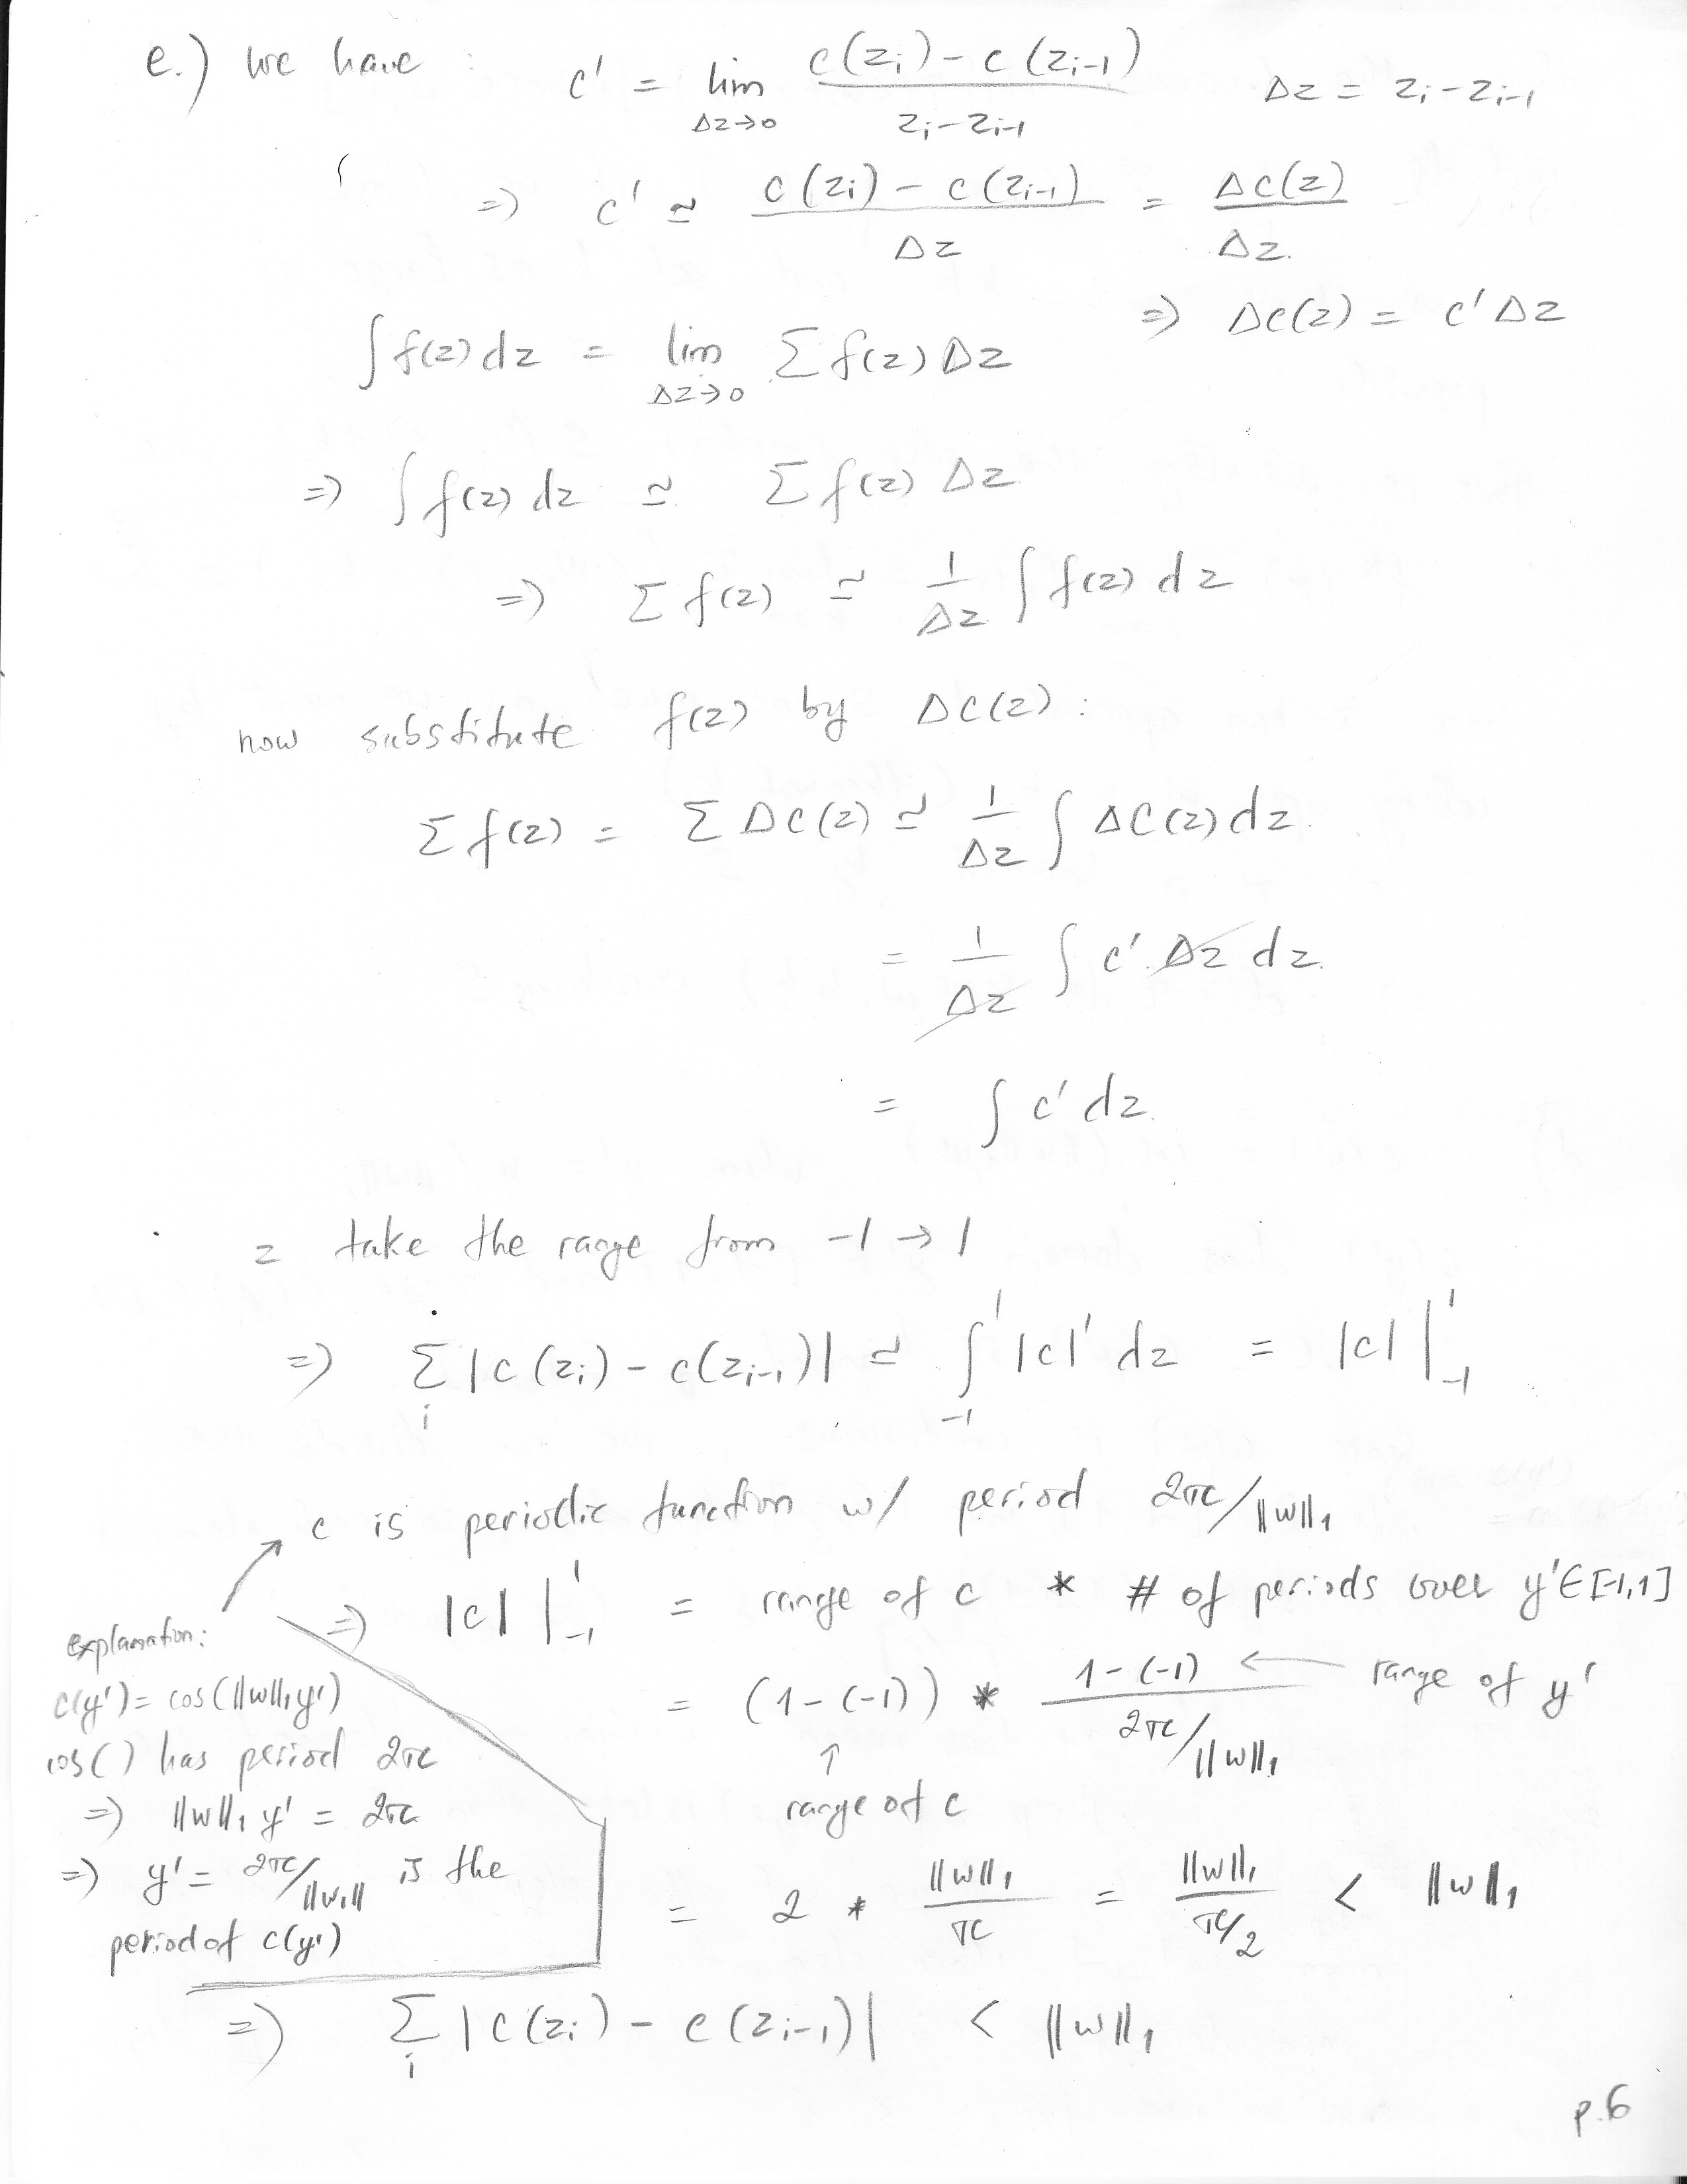 e.) we have : c' = lim Δz→0 c(zi) - c(zi-1) / zi - zi-1 Δz = zi - zi-1
=> c' ≃ c(zi) - c(zi-1) / Δz = Δc(z) / Δz.
=> Δc(z) = c'Δz
∫ f(z) dz = lim Δz→0 Σ f(z) Δz
=> ∫ f(z) dz ≃ Σ f(z) Δz
=> Σ f(z) ≃ 1/Δz ∫ f(z) dz
now substitute f(z) by Δc(z) :
Σ f(z) = Σ Δc(z) ≃ 1/Δz ∫ Δc(z) dz.
= 1/Δz ∫ c' Δz dz.
= ∫ c' dz.
z take the range from -1 → 1
=> Σi |c(zi) - c(zi-1)| ≃ ∫ -1 1 |c|' dz = |c| | -1 1
c is periodic function w/ period 2π/||w||1
=> |c| | -1 1 = range of c * # of periods over y'∈[-1,1]
= (1-(-1)) * 1-(-1) / 2π/||w||1 ← range of y'
↑
range of c
= 2 * ||w||1 / π = ||w||1 / π/2 < ||w||1
explanation:
c(y') = cos(||w||1 y')
cos() has period 2π
=> ||w||1 y' = 2π
=> y' = 2π/||w1|| is the
period of c(y')
=> Σi |c(zi) - c(zi-1)| < ||w||1
p.6